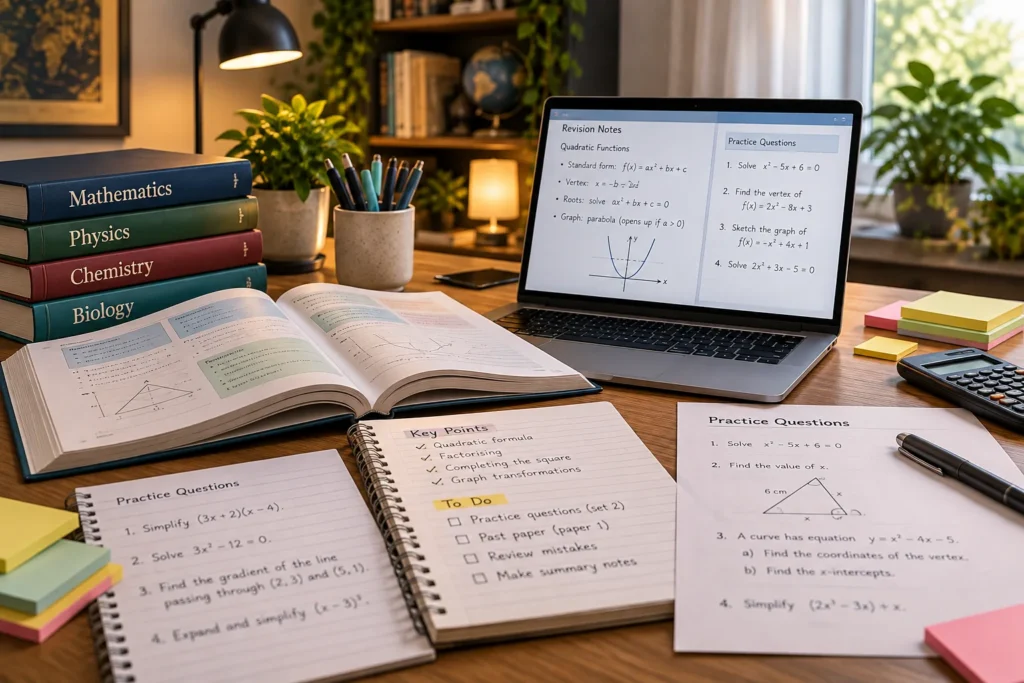 Mathematics
Physics
Chemistry
Biology
Revision Notes
Quadratic Functions
• Standard form: f(x) = ax² + bx + c
• Vertex: x = −b ÷ 2a
• Roots: solve ax² + bx + c = 0
• Graph: parabola (opens up if a > 0)
y
x
Practice Questions
1. Solve x² − 5x + 6 = 0
2. Find the vertex of
f(x) = 2x² − 8x + 3
3. Sketch the graph of
f(x) = −x² + 4x + 1
4. Solve 2x² + 3x − 5 = 0
Practice Questions
1. Simplify (3x + 2)(x − 4).
2. Solve 3x² − 12 = 0.
3. Find the gradient of the line
passing through (2, 3) and (5, 1).
4. Expand and simplify (x − 3)².
Key Points
✓ Quadratic formula
✓ Factorising
✓ Completing the square
✓ Graph transformations
To Do
☐ Practice questions (set 2)
☐ Past paper (paper 1)
☐ Review mistakes
☐ Make summary notes
Practice Questions
1. Solve x² − 5x + 6 = 0
2. Find the value of x.
6 cm
x
x
3. A curve has equation y = x² − 4x − 5.
a) Find the coordinates of the vertex.
b) Find the x-intercepts.
4. Simplify (2x³ − 3x) ÷ x.